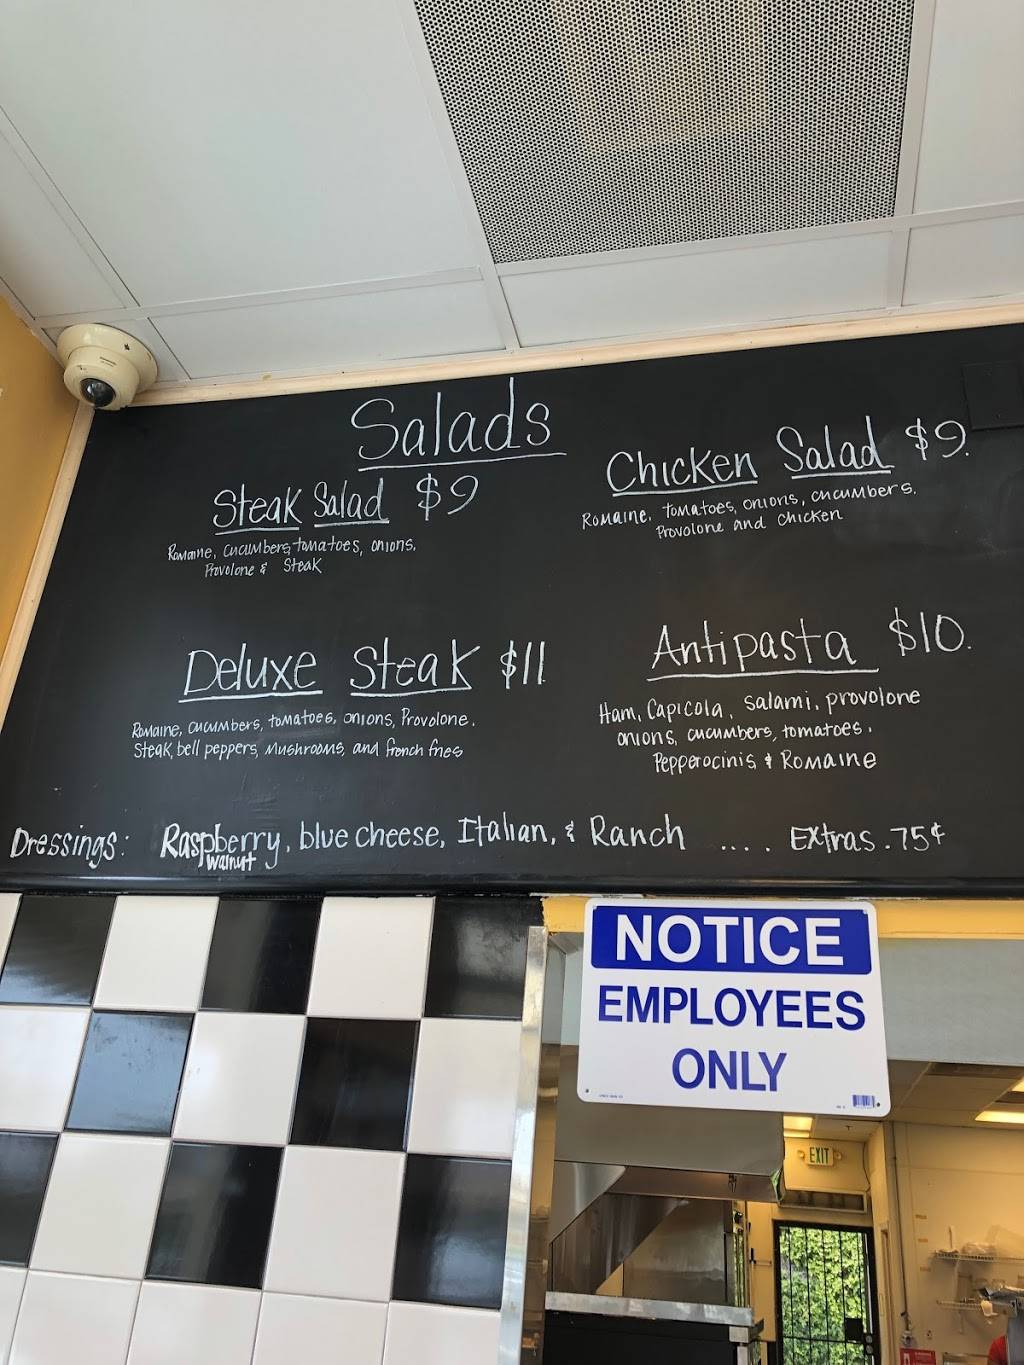 Salads
Steak Salad $9
Romaine, cucumbers, tomatoes, onions.
Provolone & Steak
Chicken Salad $9.
Romaine, tomatoes, onions, cucumbers.
Provolone and chicken
Deluxe Steak $11
Romaine, cucumbers, tomatoes, onions, Provolone.
Steak, bell peppers, Mushrooms, and french fries
Antipasta $10.
Ham, Capicola, salami, provolone
onions, cucumbers, tomatoes,
Pepperocinis & Romaine
Dressings: Raspberry, blue cheese, Italian, & Ranch .... Extras .75¢
walnut
NOTICE
EMPLOYEES
ONLY
EXIT